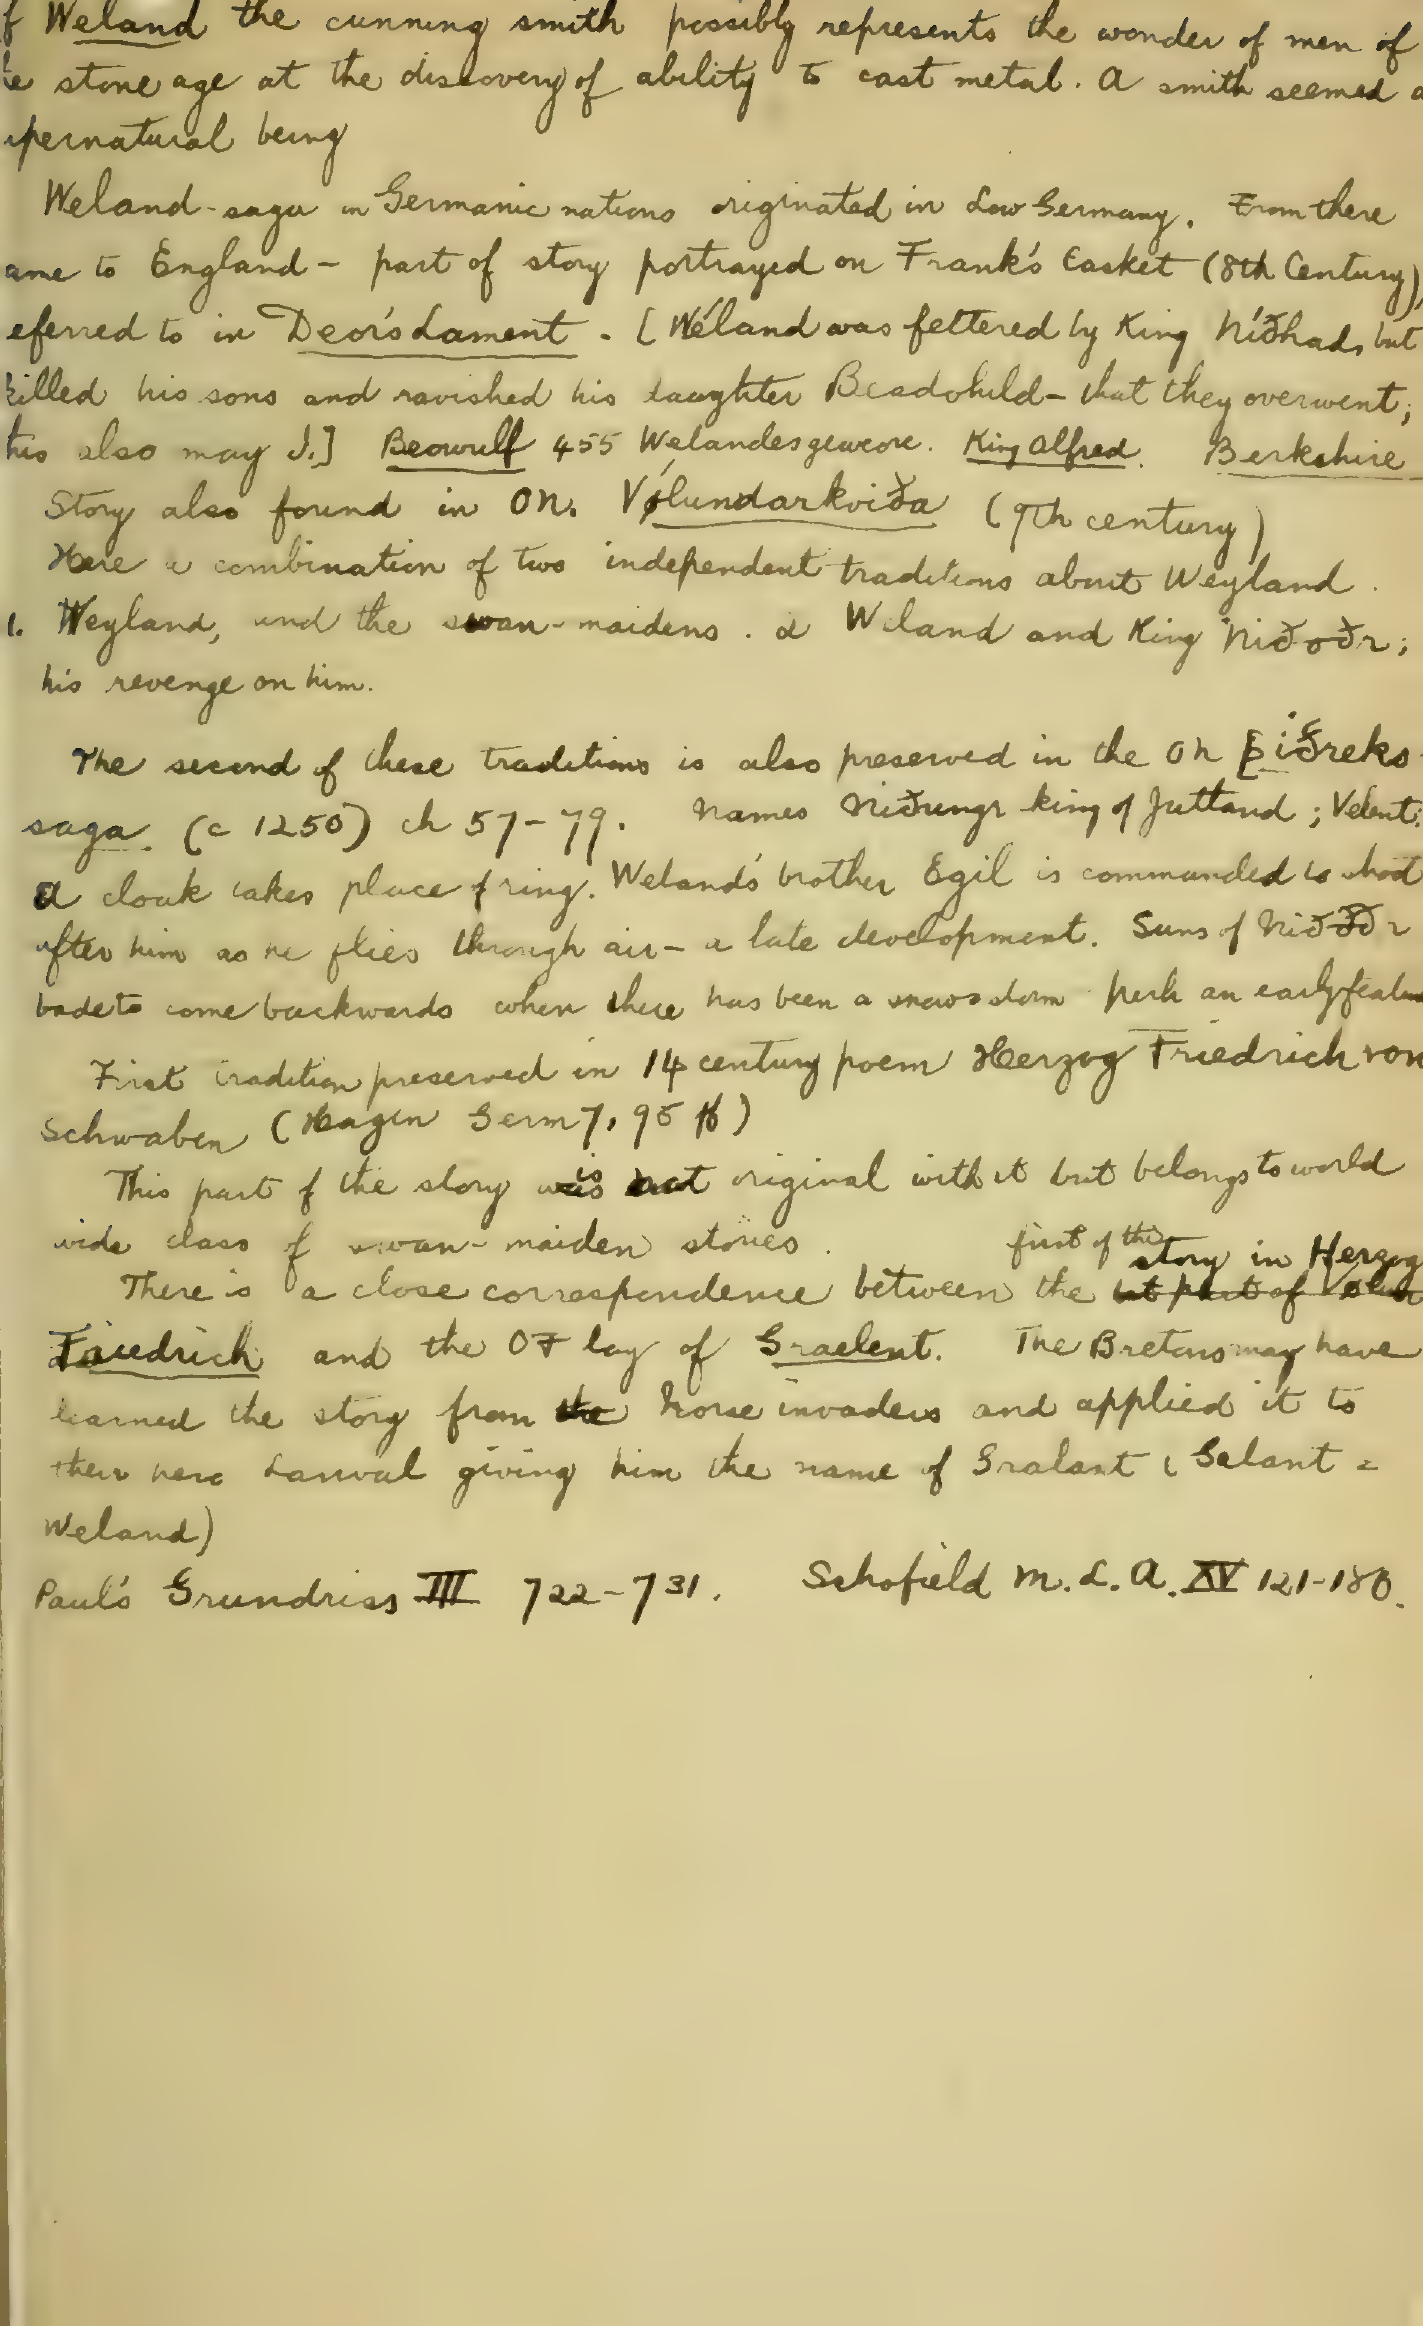 f Weland the cunning smith possibly represents the wonder of men of
e stone age at the discovery of ability to cast metal. A smith seemed a
pernatural being
Weland-saga in Germanic nations originated in Low Germany. From there
ame to England – part of story portrayed on Frank's Casket (8th Century),
eferred to in Deor's Lament. [Wéland was fettered by King Niðhads but
killed his sons and ravished his daughter Beadohild – that they overwent;
his also may I.] Beowulf 455 Welandes geweorc. King Alfred. Berkshire
Story also found in ON. Vǿlundarkviða (9th century)
Here a combination of two independent traditions about Weyland.
1. Weyland, and the swan-maidens. 2 Weland and King Niðoðr;
his revenge on him.
The second of these traditions is also preserved in the ON Þiðreks
saga. (c 1250) ch 57-79. Names Niðungr king of Jutland; Velent.
A cloak takes place of ring. Weland's brother Egil is commanded to shoot
after him as he flies through air – a late development. Sons of Niðoðr
bade to come backwards when there has been a snow storm perh an early feature
First tradition preserved in 14 century poem Herzog Friedrich von
Schwaben (Hagen Germ 7, 95 ff)
This part of the story is not original with it but belongs to world
wide class of swan-maiden stories.
first of the story in Herzog
There is a close correspondence between the 1st part of Vǿlun
Friedrich and the OF lay of Graelent. The Bretons may have
learned the story from the Norse invaders and applied it to
their hero Lanval giving him the name of Gralant (Galant =
Weland)
Paul's Grundriss III 722-731. Schofield M.L.A. XV 121-180.